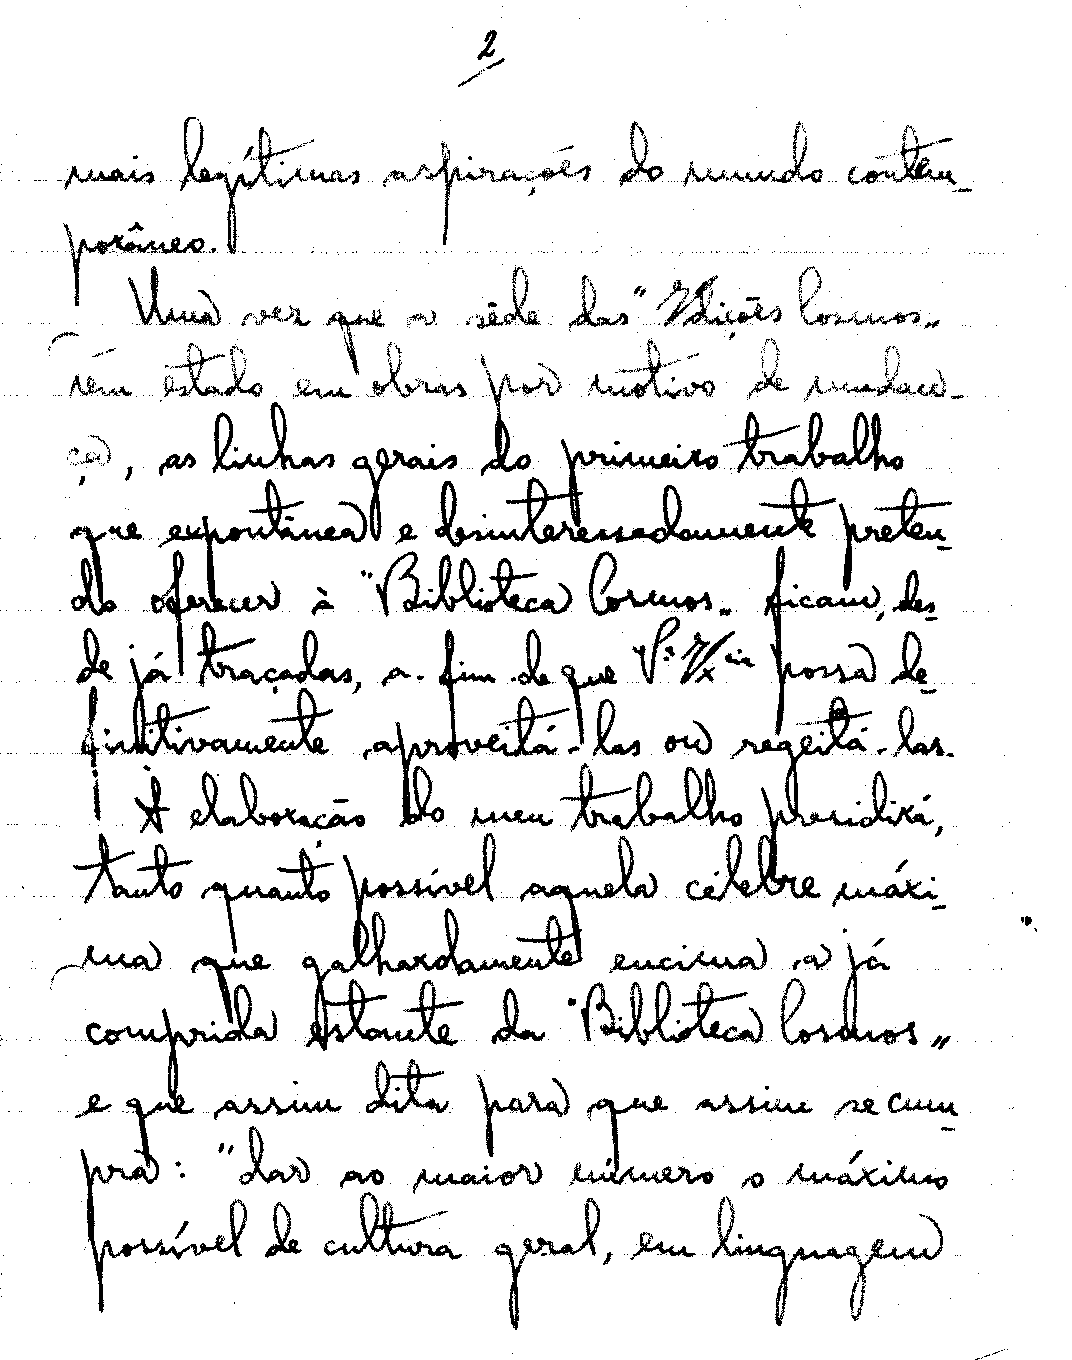 2
mais legítimas aspirações do mundo contem-
porâneo.
Uma vez que a séde das "Edições Cosmos"
têm estado em obras por motivo de mudan-
ça, as linhas gerais do primeiro trabalho
que expontânea e desinteressadamente preten-
do oferecer à "Biblioteca Cosmos" ficam, des-
de já traçadas, a fim de que V.ª Ex.cia possa de-
finitivamente aproveitá-las ou regeitá-las.
A elaboração do meu trabalho presidirá,
tanto quanto possível aquela célebre máxi-
ma que galhardamente encima a já
comprida estante da "Biblioteca Cosmos"
e que assim dita para que assim se cum-
pra: "dar ao maior número o máximo
possível de cultura geral, em linguagem